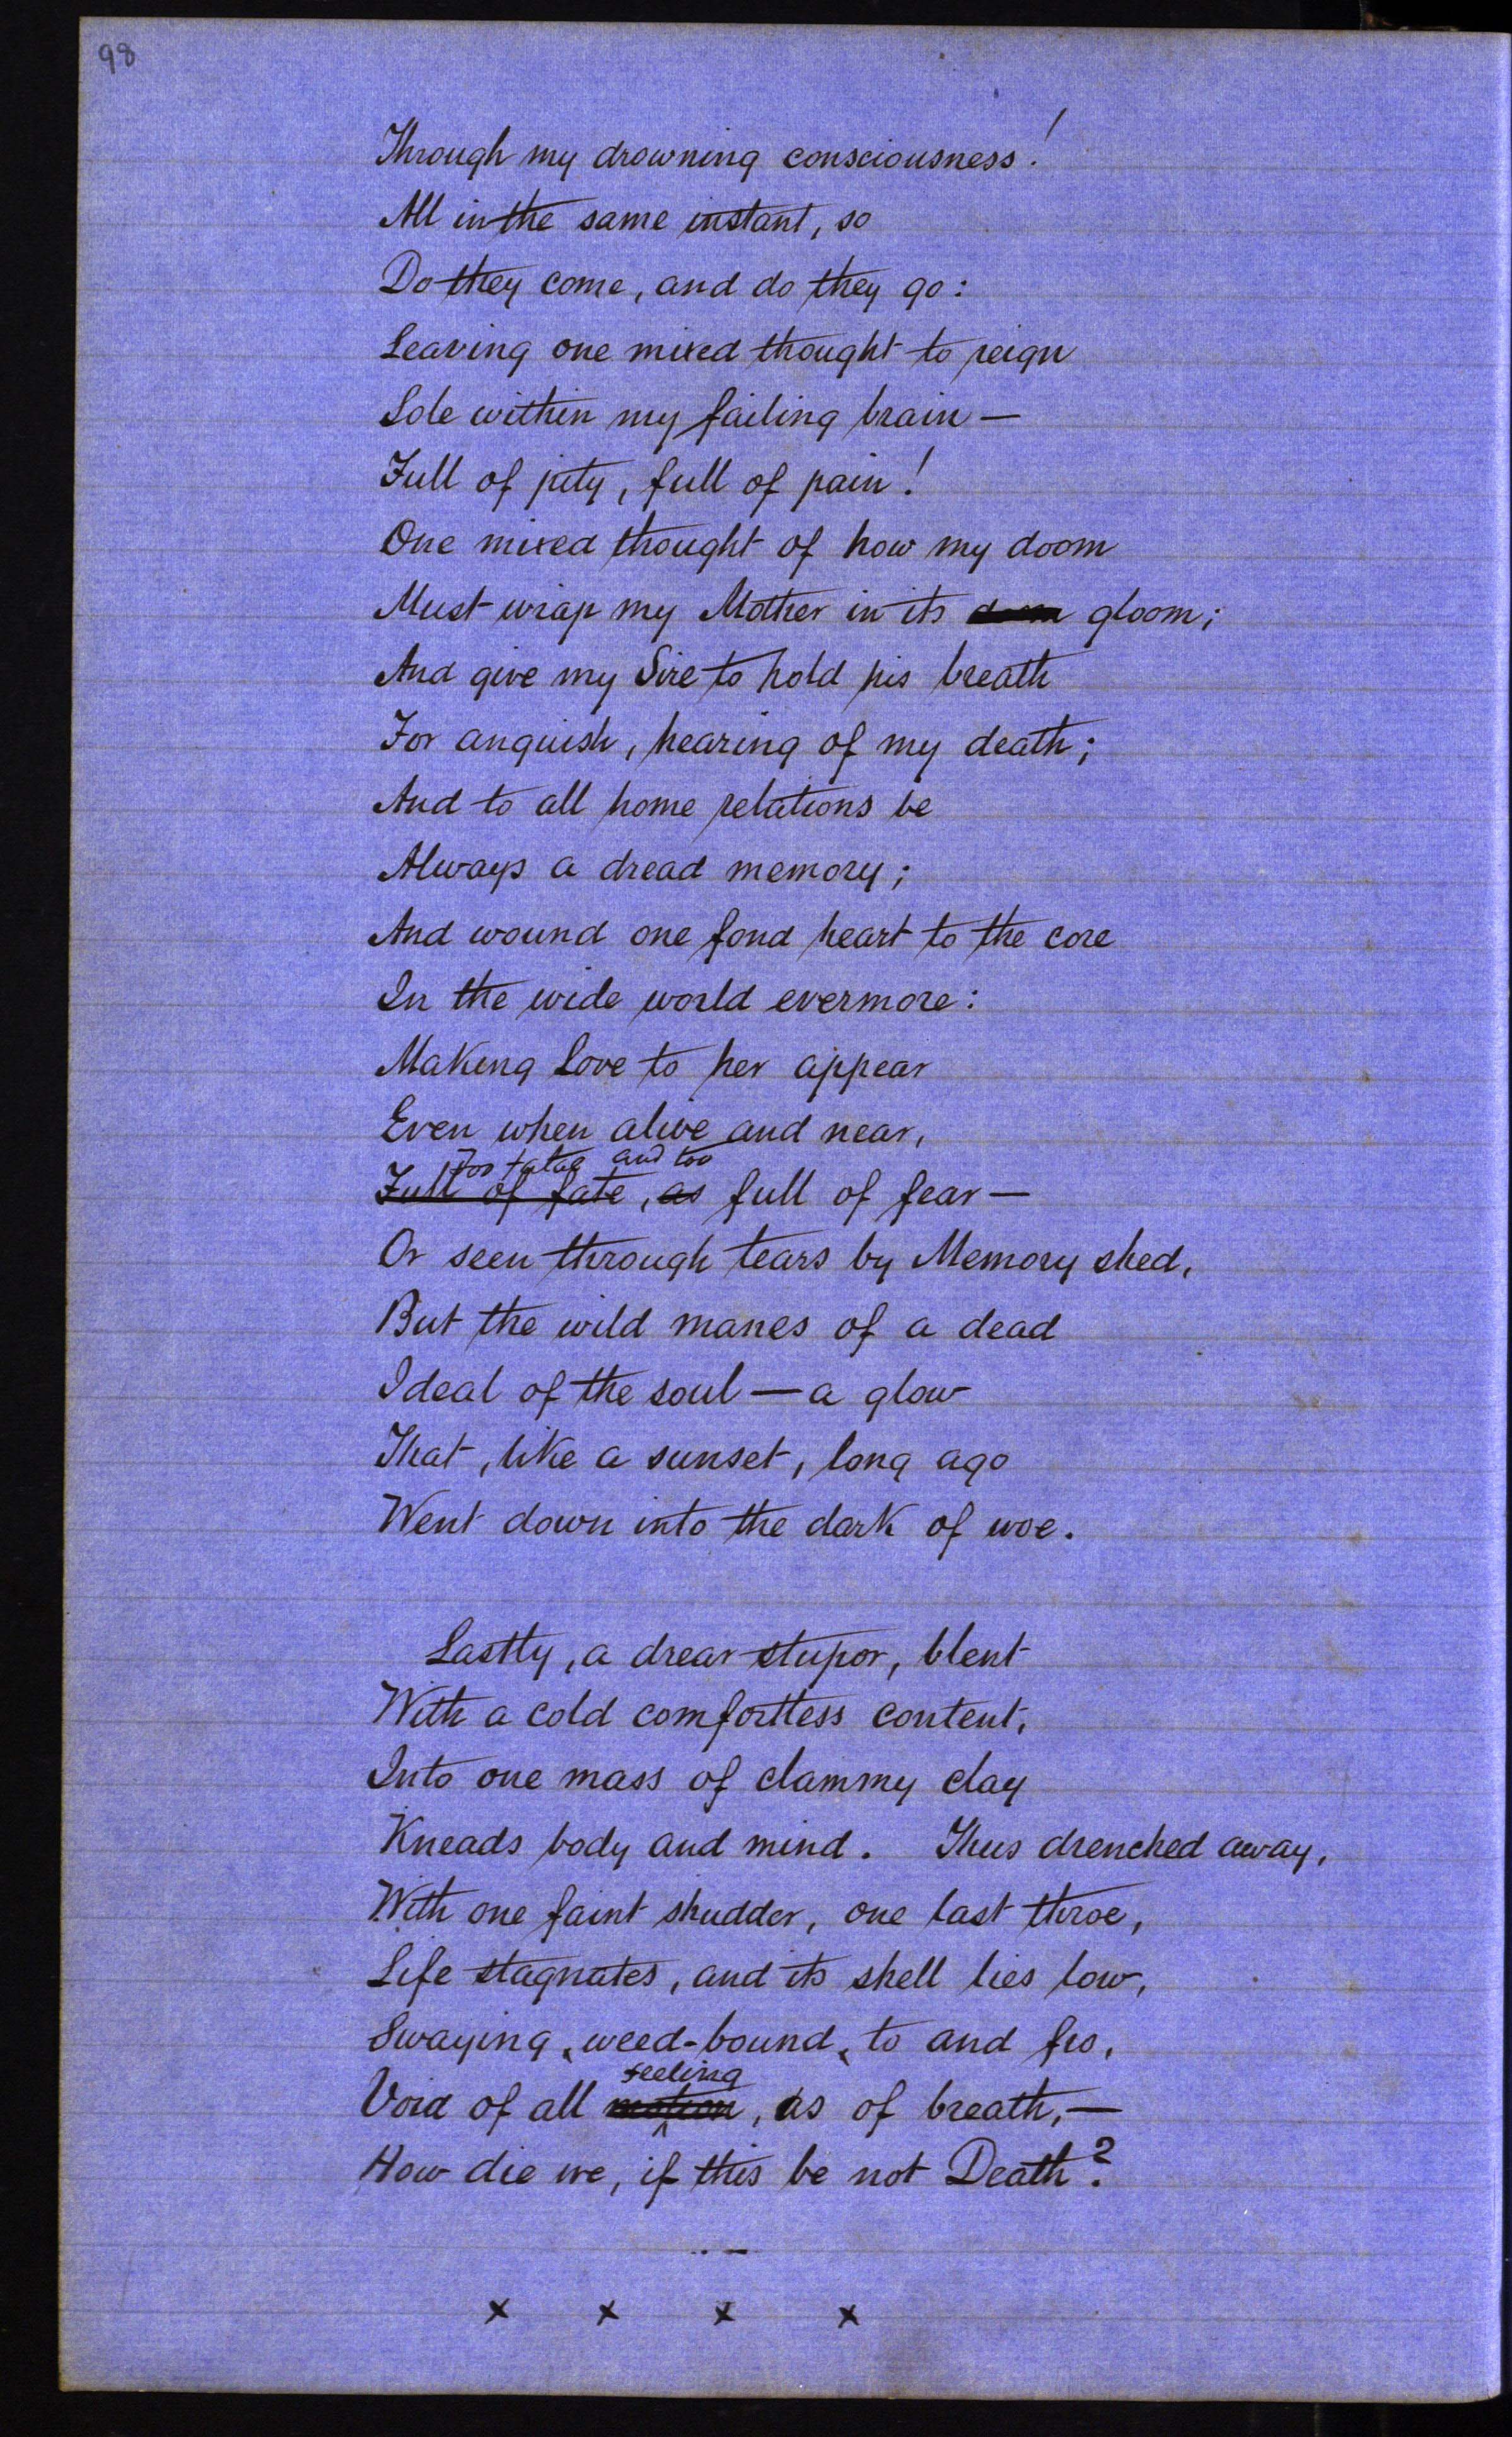 98
Through my drowning consciousness!
All in the same instant, so
Do they come, and do they go:
Leaving one mixed thought to reign
Sole within my failing brain —
Full of pity, full of pain!
One mixed thought of how my doom
Must wrap my Mother in its gloom;
And give my Sire to hold his breath
For anguish, hearing of my death;
And to all home relations be
Always a dread memory;
And wound one fond heart to the core
In the wide world evermore:
Making Love to her appear
Even when alive and near,
Too fatal and too
Full of fate, as full of fear —
Or seen through tears by Memory shed,
But the wild manes of a dead
Ideal of the soul — a glow
That, like a sunset, long ago
Went down into the dark of woe.
Lastly, a drear stupor, blent
With a cold comfortless content,
Into one mass of clammy clay
Kneads body and mind. Thus drenched away,
With one faint shudder, one last throe,
Life stagnates, and its shell lies low,
Swaying, weed-bound, to and fro,
feeling
Void of all motion, as of breath, —
How die we, if this be not Death?
x x x x